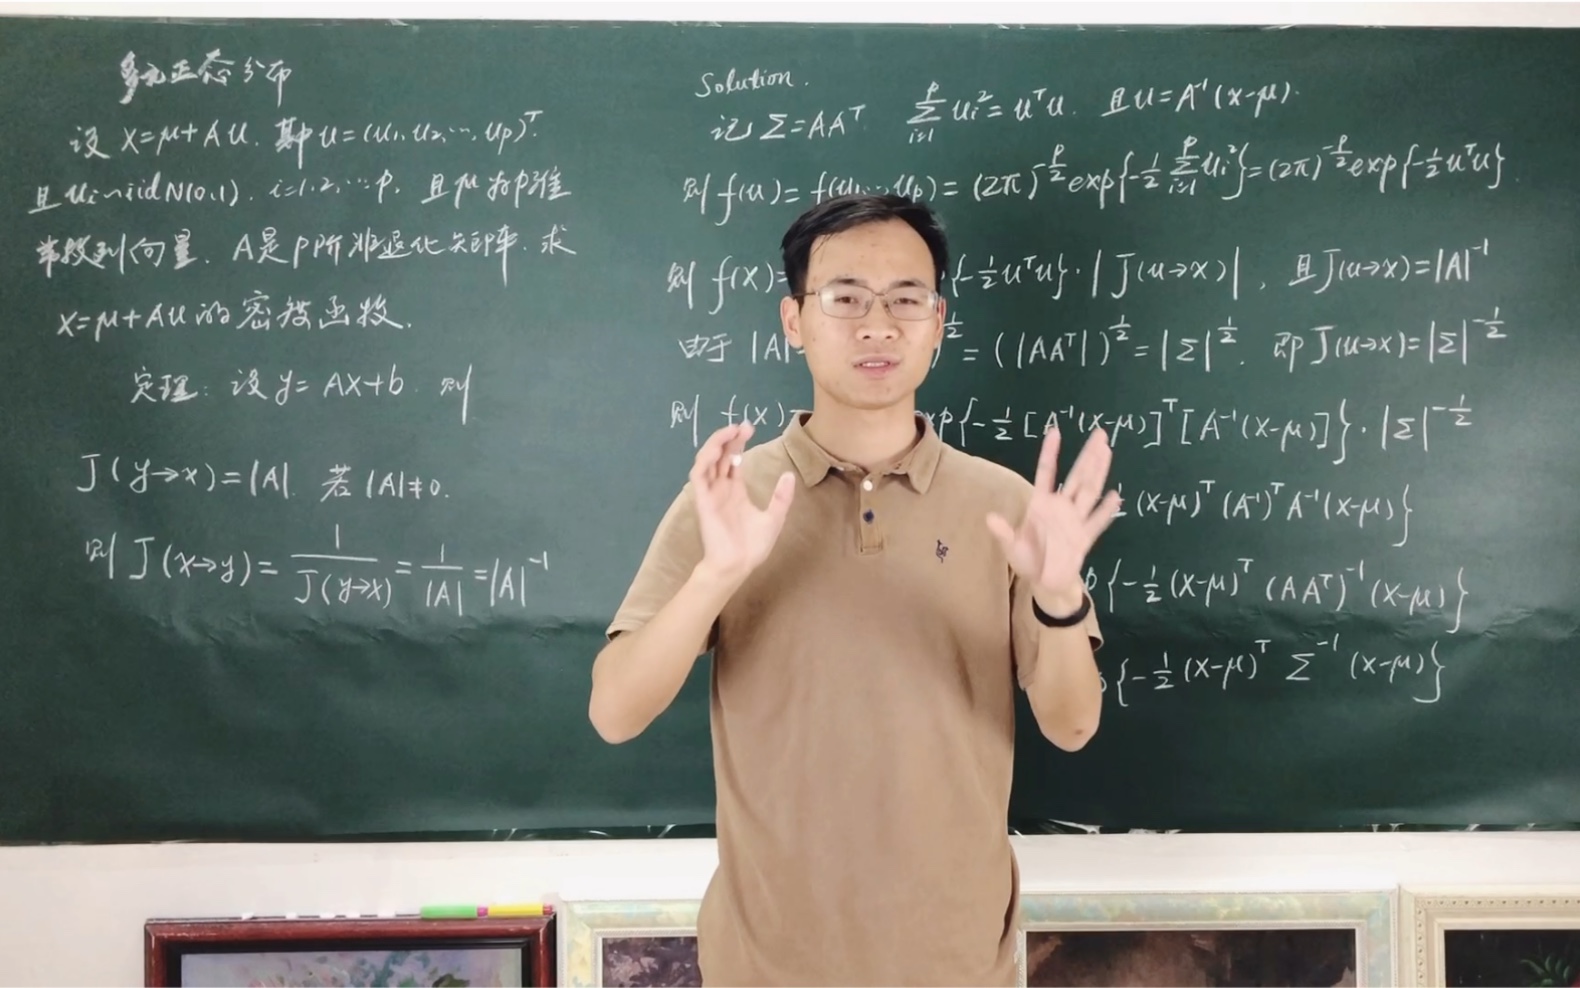 多元正态分布
设 X=μ+AU. 其中 u=(u₁,u₂,…,u_p)ᵀ.
且 uᵢ~iid N(0,1), i=1,2,…p, 且μ为p维
常数列向量. A是p阶非退化矩阵. 求
X=μ+AU的密度函数.
定理: 设 y=AX+b. 则
J(y→x)=|A|. 若|A|≠0.
则 J(x→y)=1/J(y→x)=1/|A|=|A|⁻¹
Solution.
记 Σ=AAᵀ ∑ᵢ₌₁ᵖ uᵢ²=uᵀu. 且 u=A⁻¹(x-μ).
则 f(u)=f(u₁…u_p)=(2π)^(-p/2) exp{-1/2 ∑ᵢ₌₁ᵖ uᵢ²}=(2π)^(-p/2) exp{-1/2 uᵀu}.
则 f(x)= {-1/2 uᵀu}·|J(u→x)|, 且 J(u→x)=|A|⁻¹
由于 |A| )^(1/2)=(|AAᵀ|)^(1/2)=|Σ|^(1/2). 即 J(u→x)=|Σ|^(-1/2)
则 f(x)= xp{-1/2[A⁻¹(x-μ)]ᵀ[A⁻¹(x-μ)]}·|Σ|^(-1/2)
(x-μ)ᵀ(A⁻¹)ᵀA⁻¹(x-μ)}
{-1/2(x-μ)ᵀ(AAᵀ)⁻¹(x-μ)}
{-1/2(x-μ)ᵀ Σ⁻¹(x-μ)}